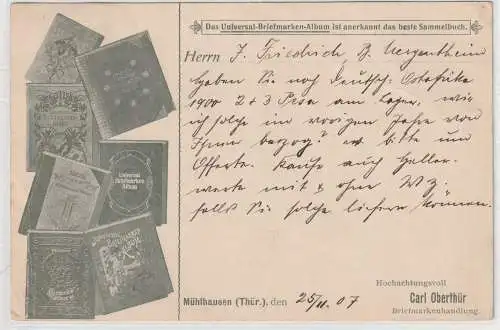 Das Universal-Briefmarken-Album ist anerkannt das beste Sammelbuch.
Herrn J. Friedrich B. Mergentheim
Haben Sie noch Deutsch. Ostafrika
1900 2 + 3 Pesa am Lager, wie
ich solche im vorigen Jahre von
Ihnen bezog? u. bitte um
Offerte. Kaufe auch Heller-
werte mit & ohne Wz.
falls Sie solche liefern können.
Universal
Briefmarken
Album
Hochachtungsvoll
Mühlhausen (Thür.), den 25/11. 07 Carl Oberthür
Briefmarkenhandlung.